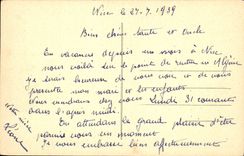 Nice le 27.7.1939
Bien chère Tante et Oncle
En vacances depuis un mois à Nice
nous voilà sur le point de rentrer en Algérie
je serais heureuse de vous voir et de vous
présenter mon mari et les enfants
Nous viendrons chez vous Lundi 31 courant
dans l'après midi
En attendant le grand plaisir d'être
parmi vous un moment
je vous embrasse bien affectueusement
Votre nièce